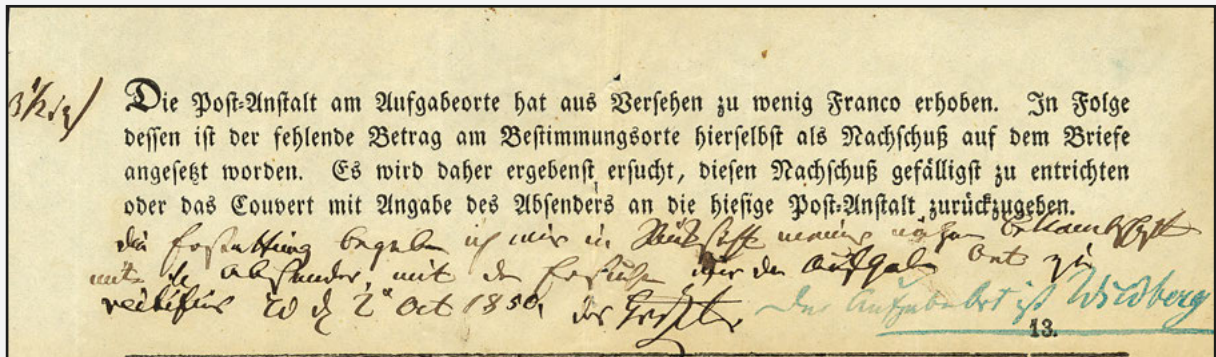 Die Post-Anstalt am Aufgabeorte hat aus Versehen zu wenig Franco erhoben. In Folge
dessen ist der fehlende Betrag am Bestimmungsorte hierselbst als Nachschuß auf dem Briefe
angesetzt worden. Es wird daher ergebenst ersucht, diesen Nachschuß gefälligst zu entrichten
oder das Couvert mit Angabe des Absenders an die hiesige Post-Anstalt zurückzugeben.
ich mir in meine
Absender, mit Aufgabe Ort zu
2 Oct 1850, Der Aufgabeort ist Wildberg
13.